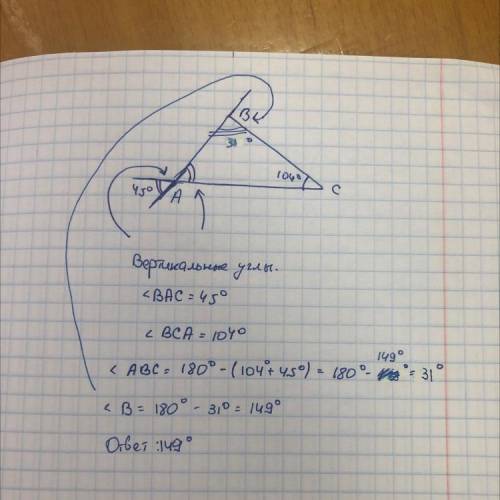 B
31°
104°
45°
A
C
Вертикальные углы.
<BAC = 45°
<BCA = 104°
149°
<ABC = 180° - (104° + 45°) = 180° - ° = 31°
<B = 180° - 31° = 149°
Ответ: 149°